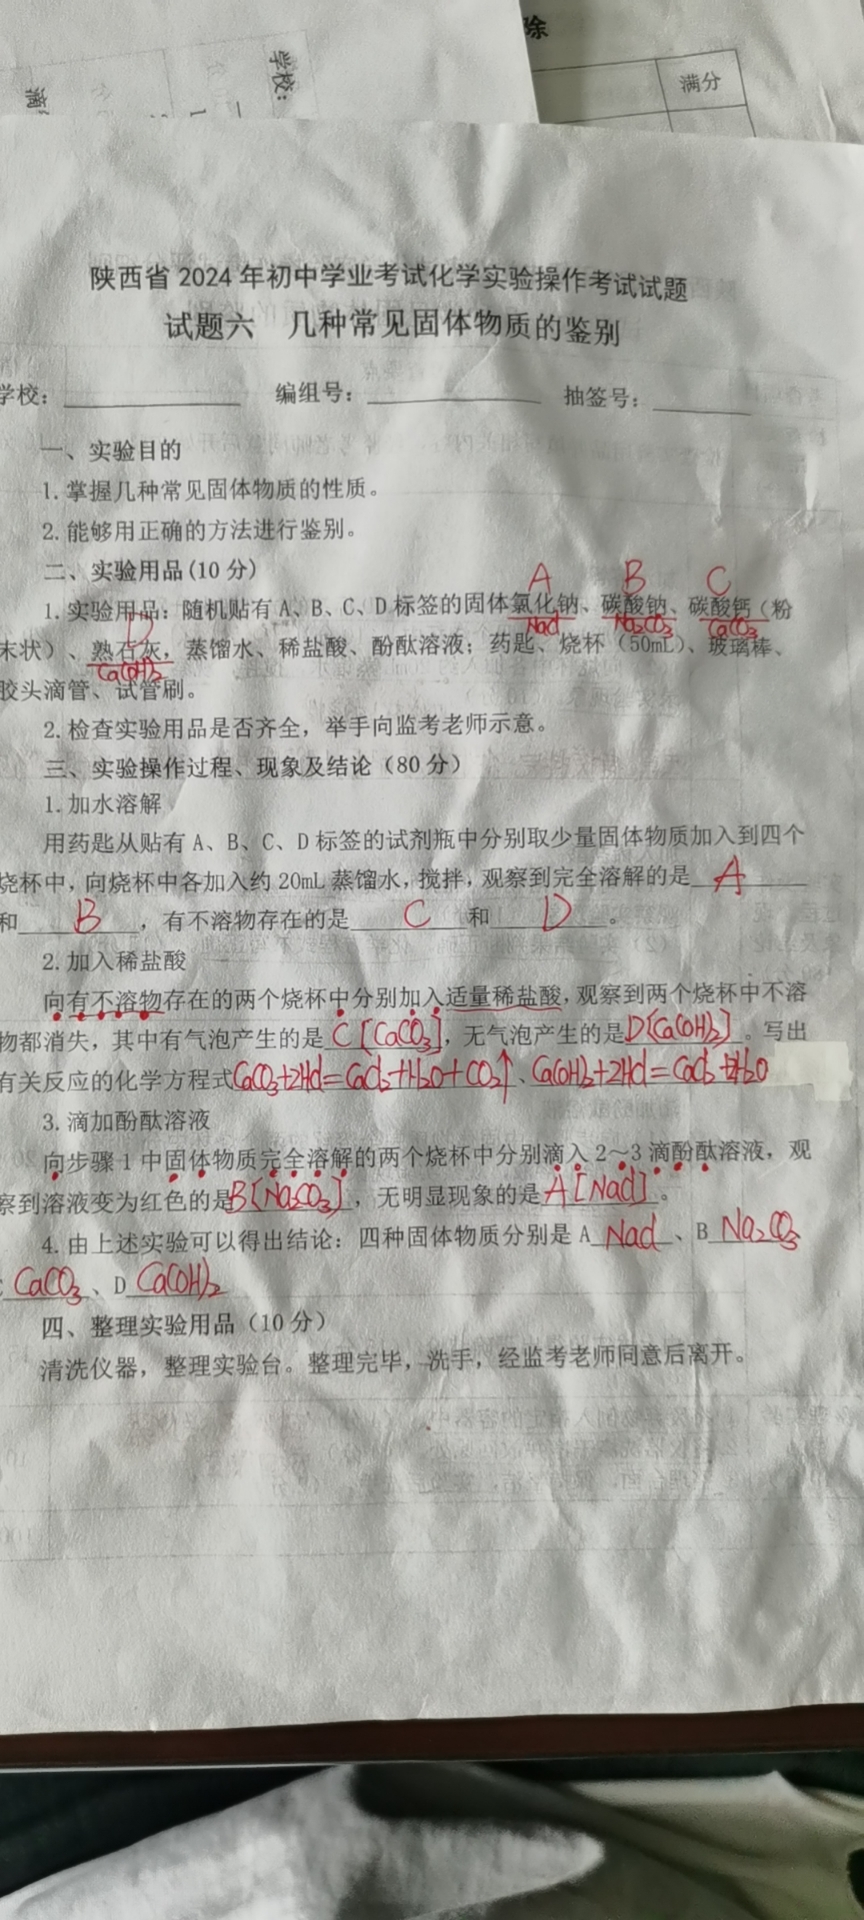 除
学校：
满分
陕西省2024年初中学业考试化学实验操作考试试题
试题六 几种常见固体物质的鉴别
学校： 编组号： 抽签号：
一、实验目的
1.掌握几种常见固体物质的性质。
2.能够用正确的方法进行鉴别。
二、实验用品(10分)
A B C
1.实验用品：随机贴有A、B、C、D标签的固体氯化钠、碳酸钠、碳酸钙（粉
D NaCl Na₂CO₃ CaCO₃
末状）、熟石灰，蒸馏水、稀盐酸、酚酞溶液；药匙、烧杯（50mL）、玻璃棒、
Ca(OH)₂
胶头滴管、试管刷。
2.检查实验用品是否齐全，举手向监考老师示意。
三、实验操作过程、现象及结论（80分）
1.加水溶解
用药匙从贴有A、B、C、D标签的试剂瓶中分别取少量固体物质加入到四个
烧杯中，向烧杯中各加入约20mL蒸馏水，搅拌，观察到完全溶解的是 A
和 B ，有不溶物存在的是 C 和 D 。
2.加入稀盐酸
向有不溶物存在的两个烧杯中分别加入适量稀盐酸，观察到两个烧杯中不溶
物都消失，其中有气泡产生的是 C [CaCO₃]，无气泡产生的是D[Ca(OH)₂] 。写出
有关反应的化学方程式CaCO₃+2HCl=CaCl₂+H₂O+CO₂↑、Ca(OH)₂+2HCl=CaCl₂+2H₂O
3.滴加酚酞溶液
向步骤1中固体物质完全溶解的两个烧杯中分别滴入2～3滴酚酞溶液，观
察到溶液变为红色的是B[Na₂CO₃]，无明显现象的是A[NaCl]。
4.由上述实验可以得出结论：四种固体物质分别是A NaCl 、B Na₂CO₃
C CaCO₃、D Ca(OH)₂
四、整理实验用品（10分）
清洗仪器，整理实验台。整理完毕，洗手，经监考老师同意后离开。